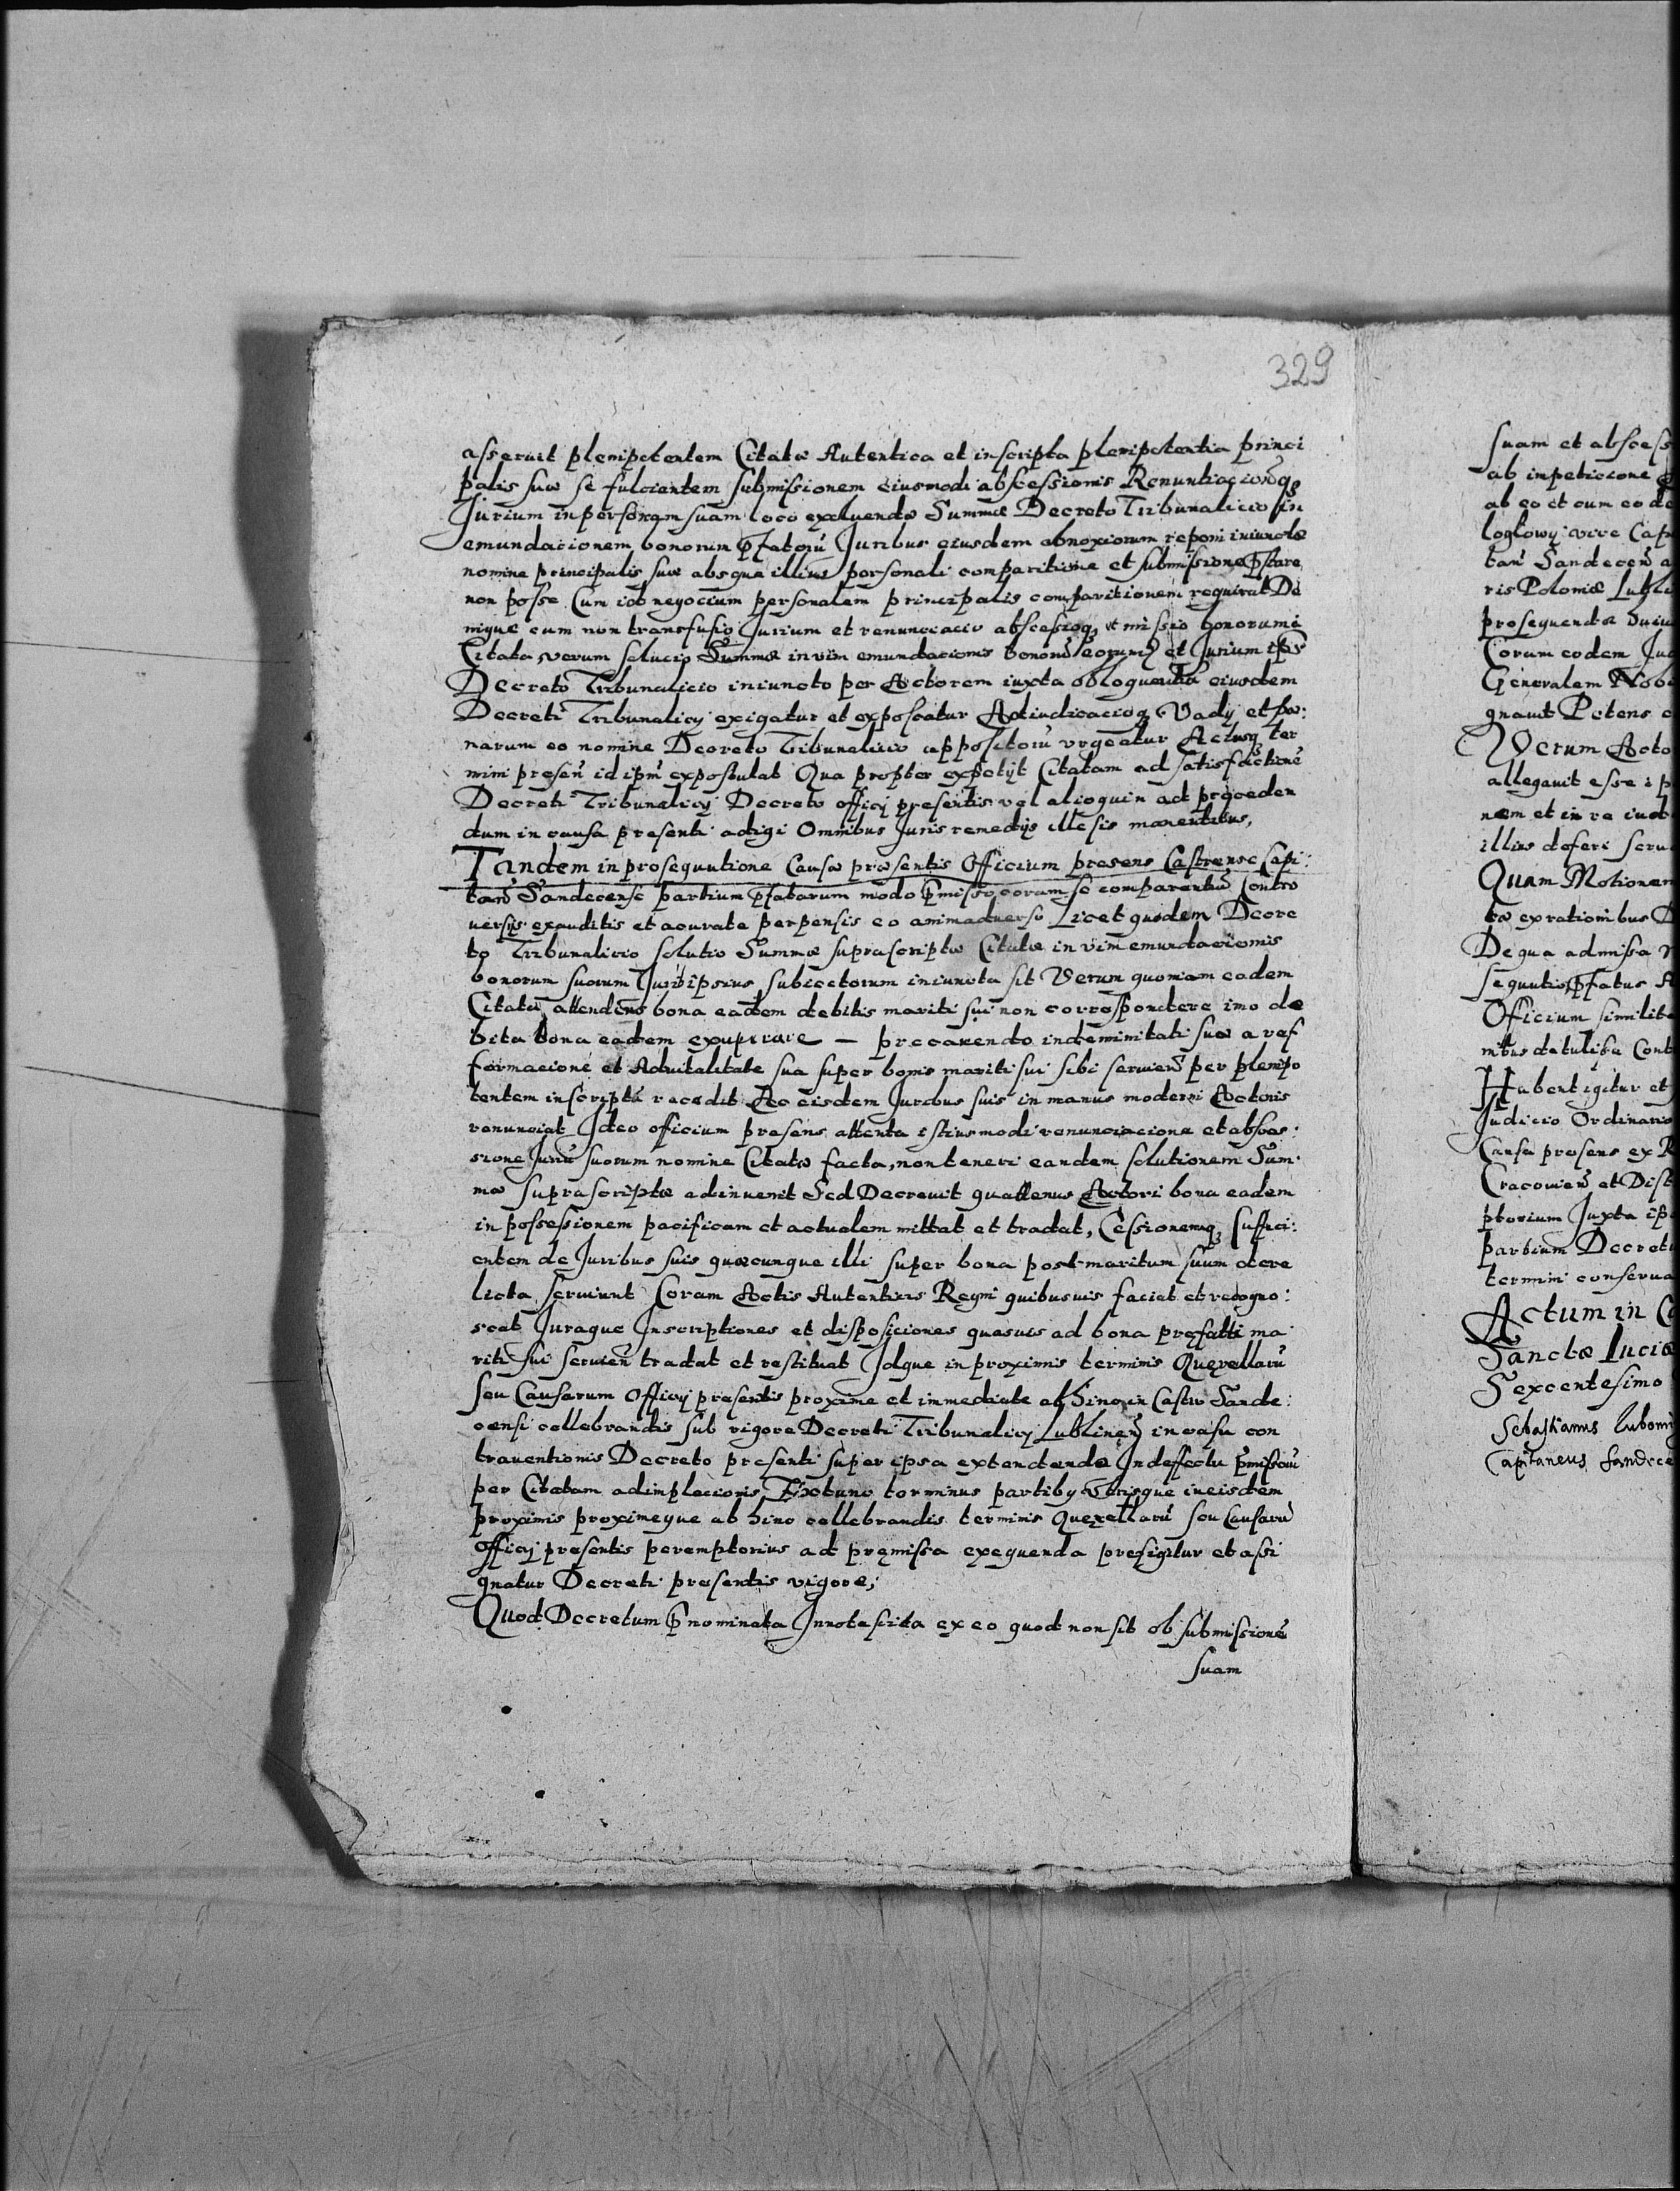 329
asseruit plenipotentem Citatæ Autentica et inscripta plenipotentia princi
palis suæ se fulcientem submissionem eiusmodi abscessionis Renuntiacionisq3
Jurium in personam suam loco exoluendæ Summæ Decreto Tribunalicio in
emundacionem bonorum pfatorũ Juribus eiusdem obnoxiorum reponi iniunctæ
nomine principalis suæ absque illius personali comparitione et submissione pstare
non posse Cum id negocium personalem principalis comparitionem requirat De
nique cum non transfusio Jurium et renunciacio abscessioq3 et missio bonorum
Citata, verum solucio Summæ in vim emundacionis bonorũ eorum et Jurium ips
Decreto Tribunalicio iniuncto per Actorem iuxta obloquentia eiusdem
Decreti Tribunalicij exigatur et exposcatur Adiudicacioq3 Vadij et pæ:
narum eo nomine Decreto Tribunalicio appositorũ vrgeatur Actusq3 ter
mini presen̄ id ipm̄ expostulat Qua propter expetijt Citatam ad satisfactionẽ
Decreti Tribunalicij Decreto officij presentis vel alioquin ad proceden
dum in causa presenti adigi Omnibus Juris remedijs illesis manentibus,
Tandem in prosequutione Causæ præsentis Officium presens Castrense Capi:
tan̄ Sandecense partium pfatarum modo pmisso coram se comparentiũ Contro
uersijs exauditis et acurate perpensis eo animaduerso Licet quidem Decre
to Tribunalicio solutio Summæ suprascriptæ Citatæ in vim emundacionis
bonorum suorum Juri ipsius subiectorum iniuncta sit Verum quoniam eadem
Citata attendens bona eadem debitis mariti sui non correspondere imo de
bita bona eadem exuperare — precauendo indemnitati suæ a ref
formacione et Aduitalitate sua super bonis mariti sui sibi seruien̄ per plenipo
tentem inscriptũ recedit Ac eisdem Juribus suis in manus moderni Actoris
renunciat Ideo officium presens attenta istiusmodi renunciacione et absces:
sione Juriũ suorum nomine Citatæ facta, non teneri eandem solutionem Sum
mæ suprascriptæ adinuenit Sed Decreuit quattenus Actori bona eadem
in possessionem pacificam et actualem mittat et tradat, Cessionemq3 suffici:
entem de Juribus suis quæcunque illi super bona post maritum suum dere
licta seruiunt Coram Actis Autenticis Regni quibusuis faciat et recogno:
scat Juraque Inscriptiones et disposiciones quasuis ad bona pręfatti ma
riti sui seruien̄ tradat et restituat Idque in proximis terminis Querellarũ
seu Causarum Officij presentis proxime et immediate ab hinc in Castro Sande:
censi cellebrandis sub rigore Decreti Tribunalicij Lublinen̄ in casu con
trauentionis Decreto presenti super ipsa extendendæ In deffectu pmissorũ
per Citatam adimplecionis Extunc terminus partibꝯ vtrisque in eisdem
proximis proximeque ab hinc cellebrandis terminis Querellarũ seu Causarũ
Officij presentis peremptorius ad pręmissa exequenda presigitur et assi
gnatur Decreti presentis vigore,
Quod Decretum pnominata Innotescita ex eo quod non sit ob submissionẽ
suam
suam et abscess
ab inpeticione
ab eo et cum eo de
loglowy vice Cap
tan̄ Sandecen̄ a
ris Poloniæ Lubli
prosequendæ huiu
Coram eodem Jud
Generalem Nobi
gnauit Petens e
Verum Acto
allegauit esse ip
nem et in re iud
illius deferi seru
Quam Motionem
tæ ex rationibus D
De qua admissa
sequutis pfatus A
Officium similite
nibus detulisse Cont
Habent igitur et
Judicio Ordinario
Causa presens ex R
Cracouien̄ et Dist
ptorium Juxta ips
partium Decreti
termini conserua
Actum in Ca
Sanctæ Luciæ
Sexcentesimo
Sebastianus Lubomi
Capitaneus Sandece